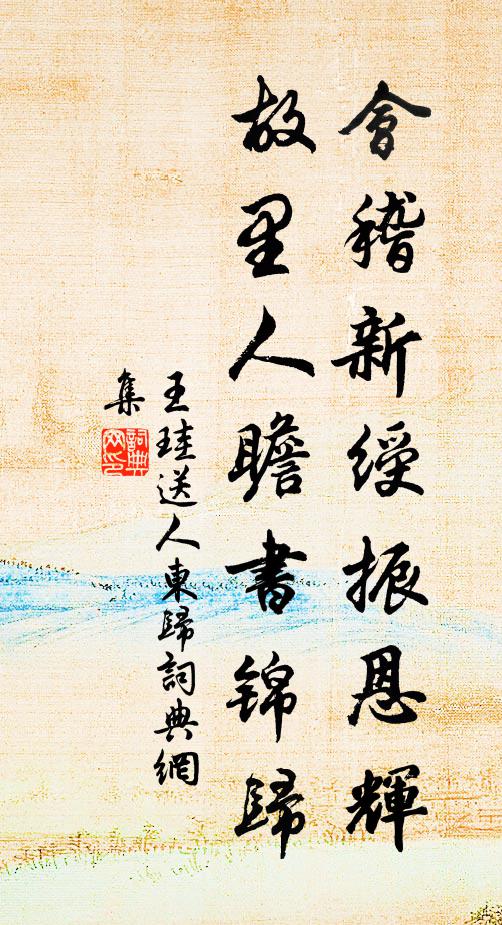 會稽新綬振恩輝
故里人瞻書錦歸
王珪送人東歸詞典網
集
詞典
网印